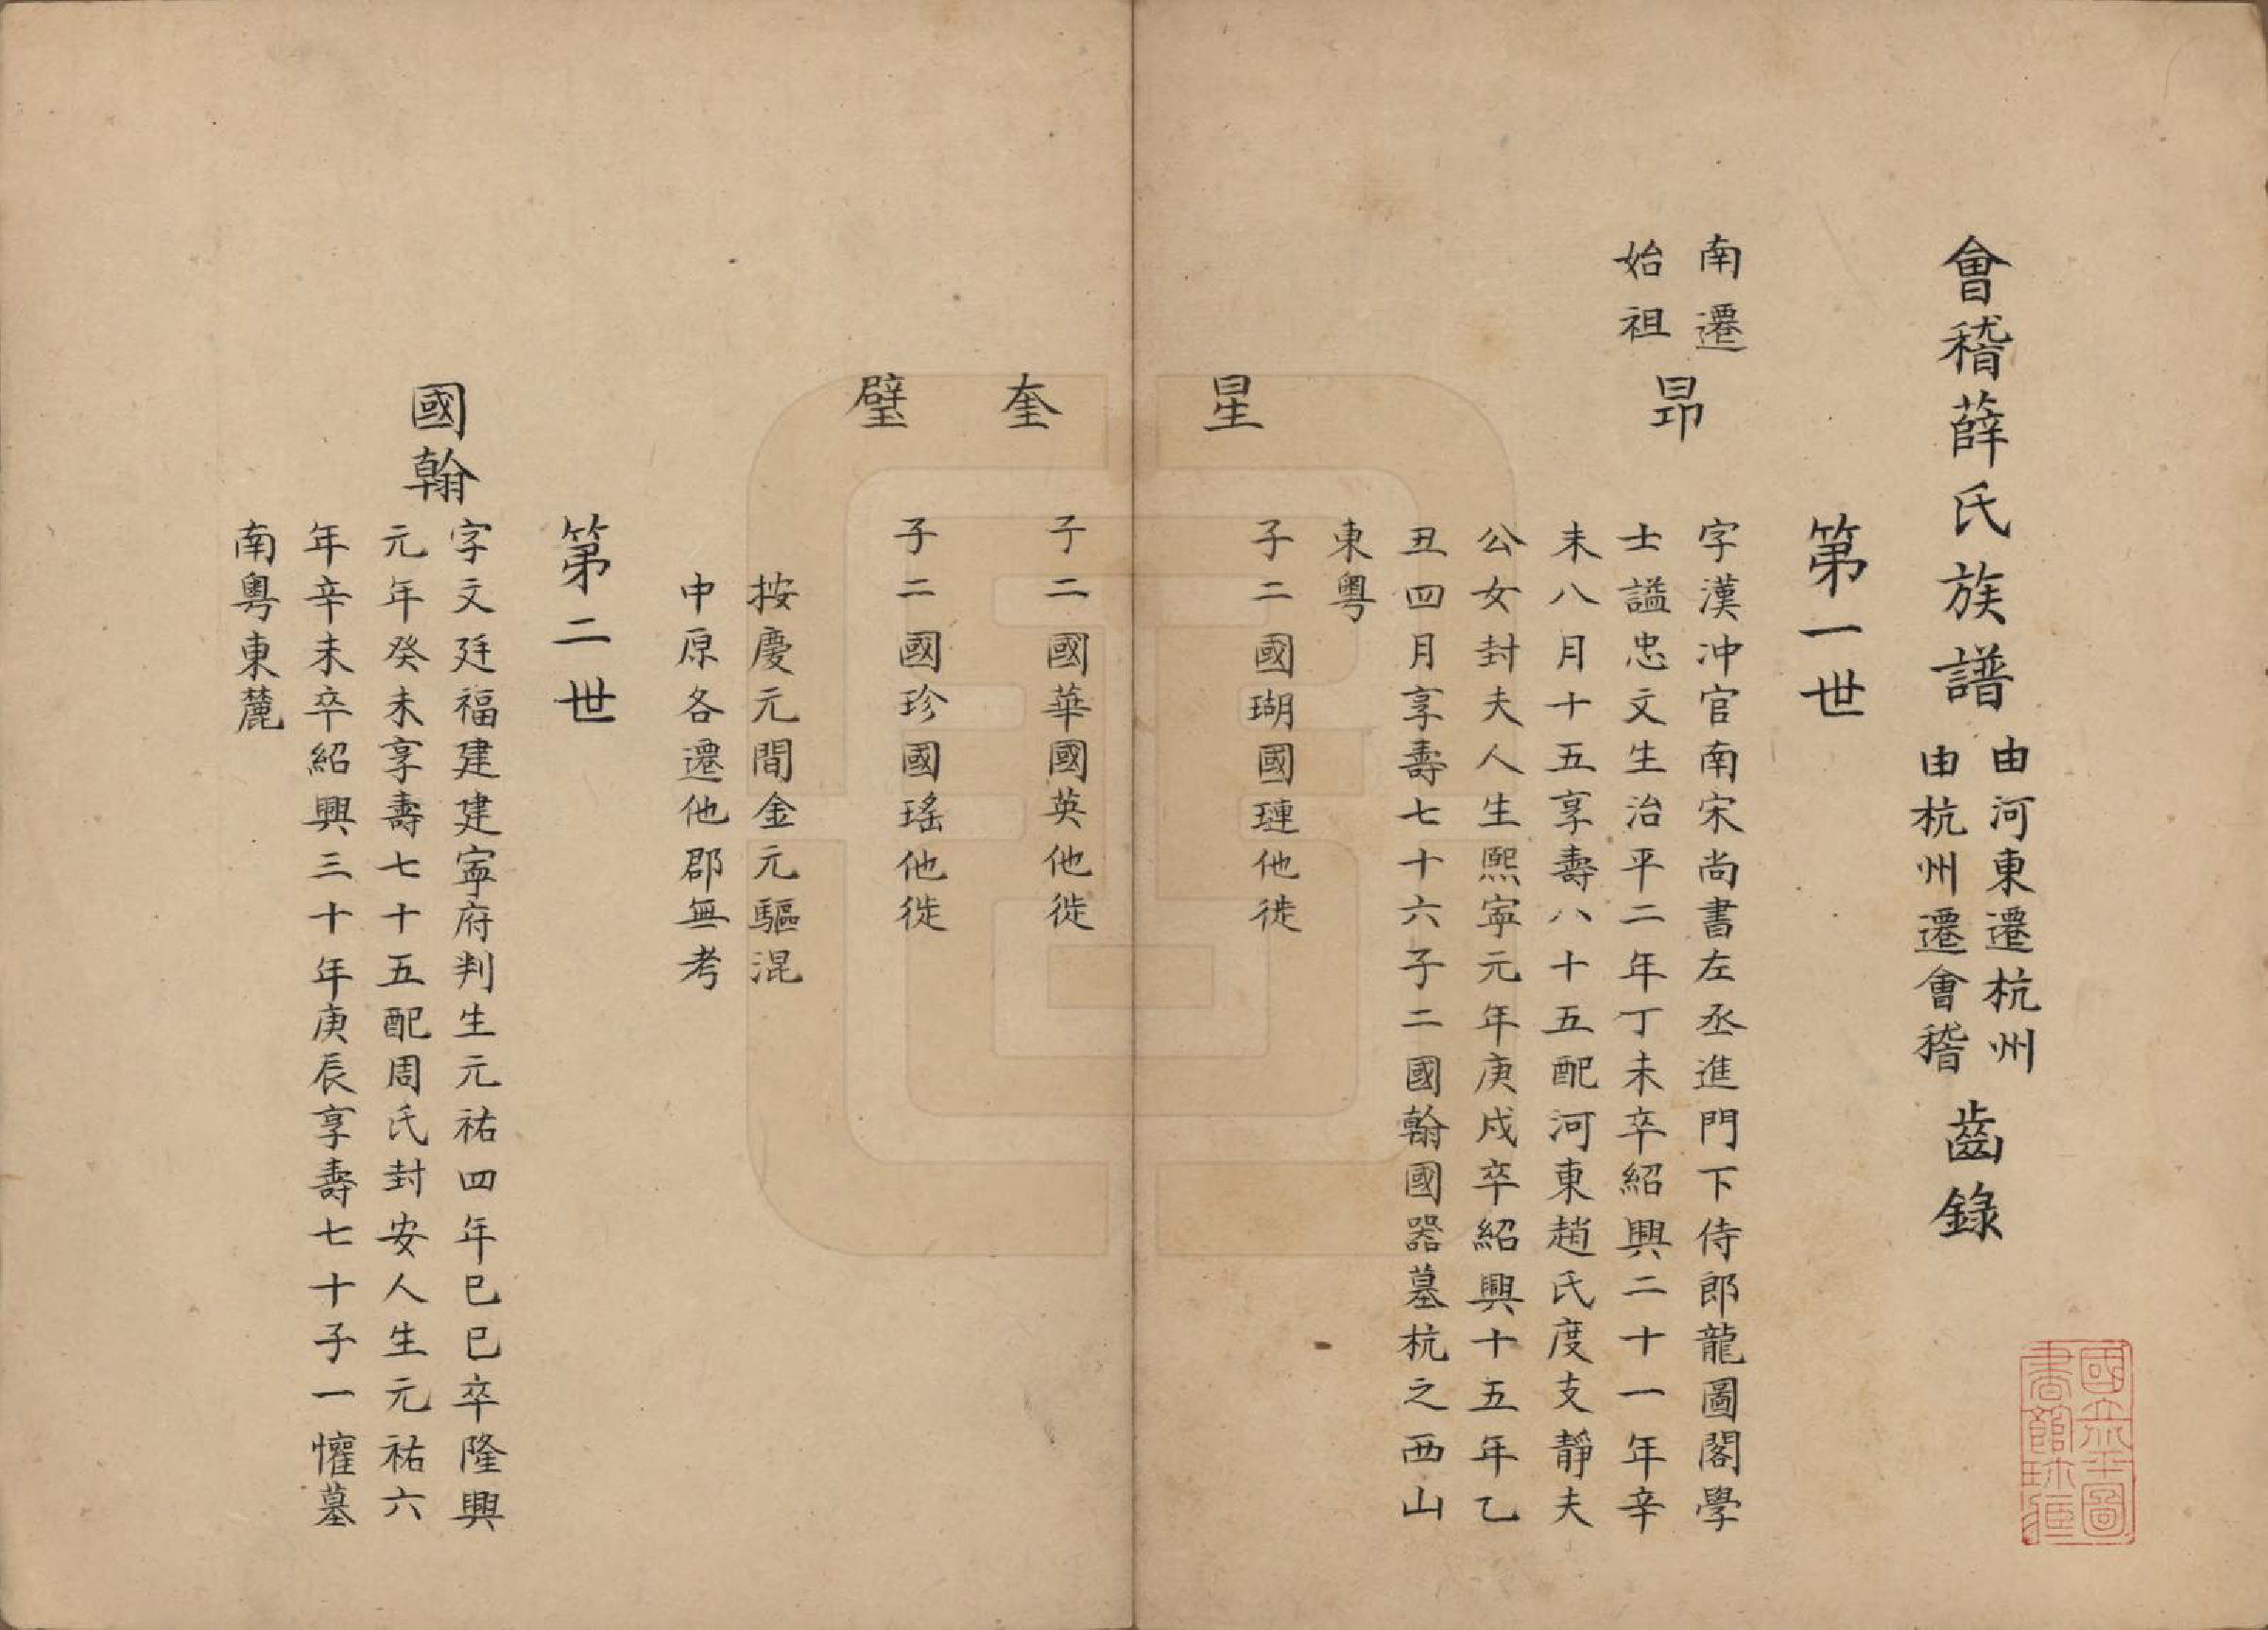 會稽薛氏族譜
由河東遷杭州
由杭州遷會稽
齒錄
第一世
南遷
始祖
昂
字漢沖官南宋尚書左丞進門下侍郎龍圖閣學
士謚忠文生治平二年丁未卒紹興二十一年辛
未八月十五享壽八十五配河東趙氏度支靜夫
公女封夫人生熙寧元年庚戍卒紹興十五年乙
丑四月享壽七十六子二國翰國器墓杭之西山
東粵
星
子二國瑚國璉他徙
奎
子二國華國英他徙
璧
子二國珍國瑤他徙
按慶元間金元驅混
中原各遷他郡無考
第二世
國翰
字文廷福建建寧府判生元祐四年巳巳卒隆興
元年癸未享壽七十五配周氏封安人生元祐六
年辛未卒紹興三十年庚辰享壽七十子一懽墓
南粵東麓
國立中央圖
書館珍藏